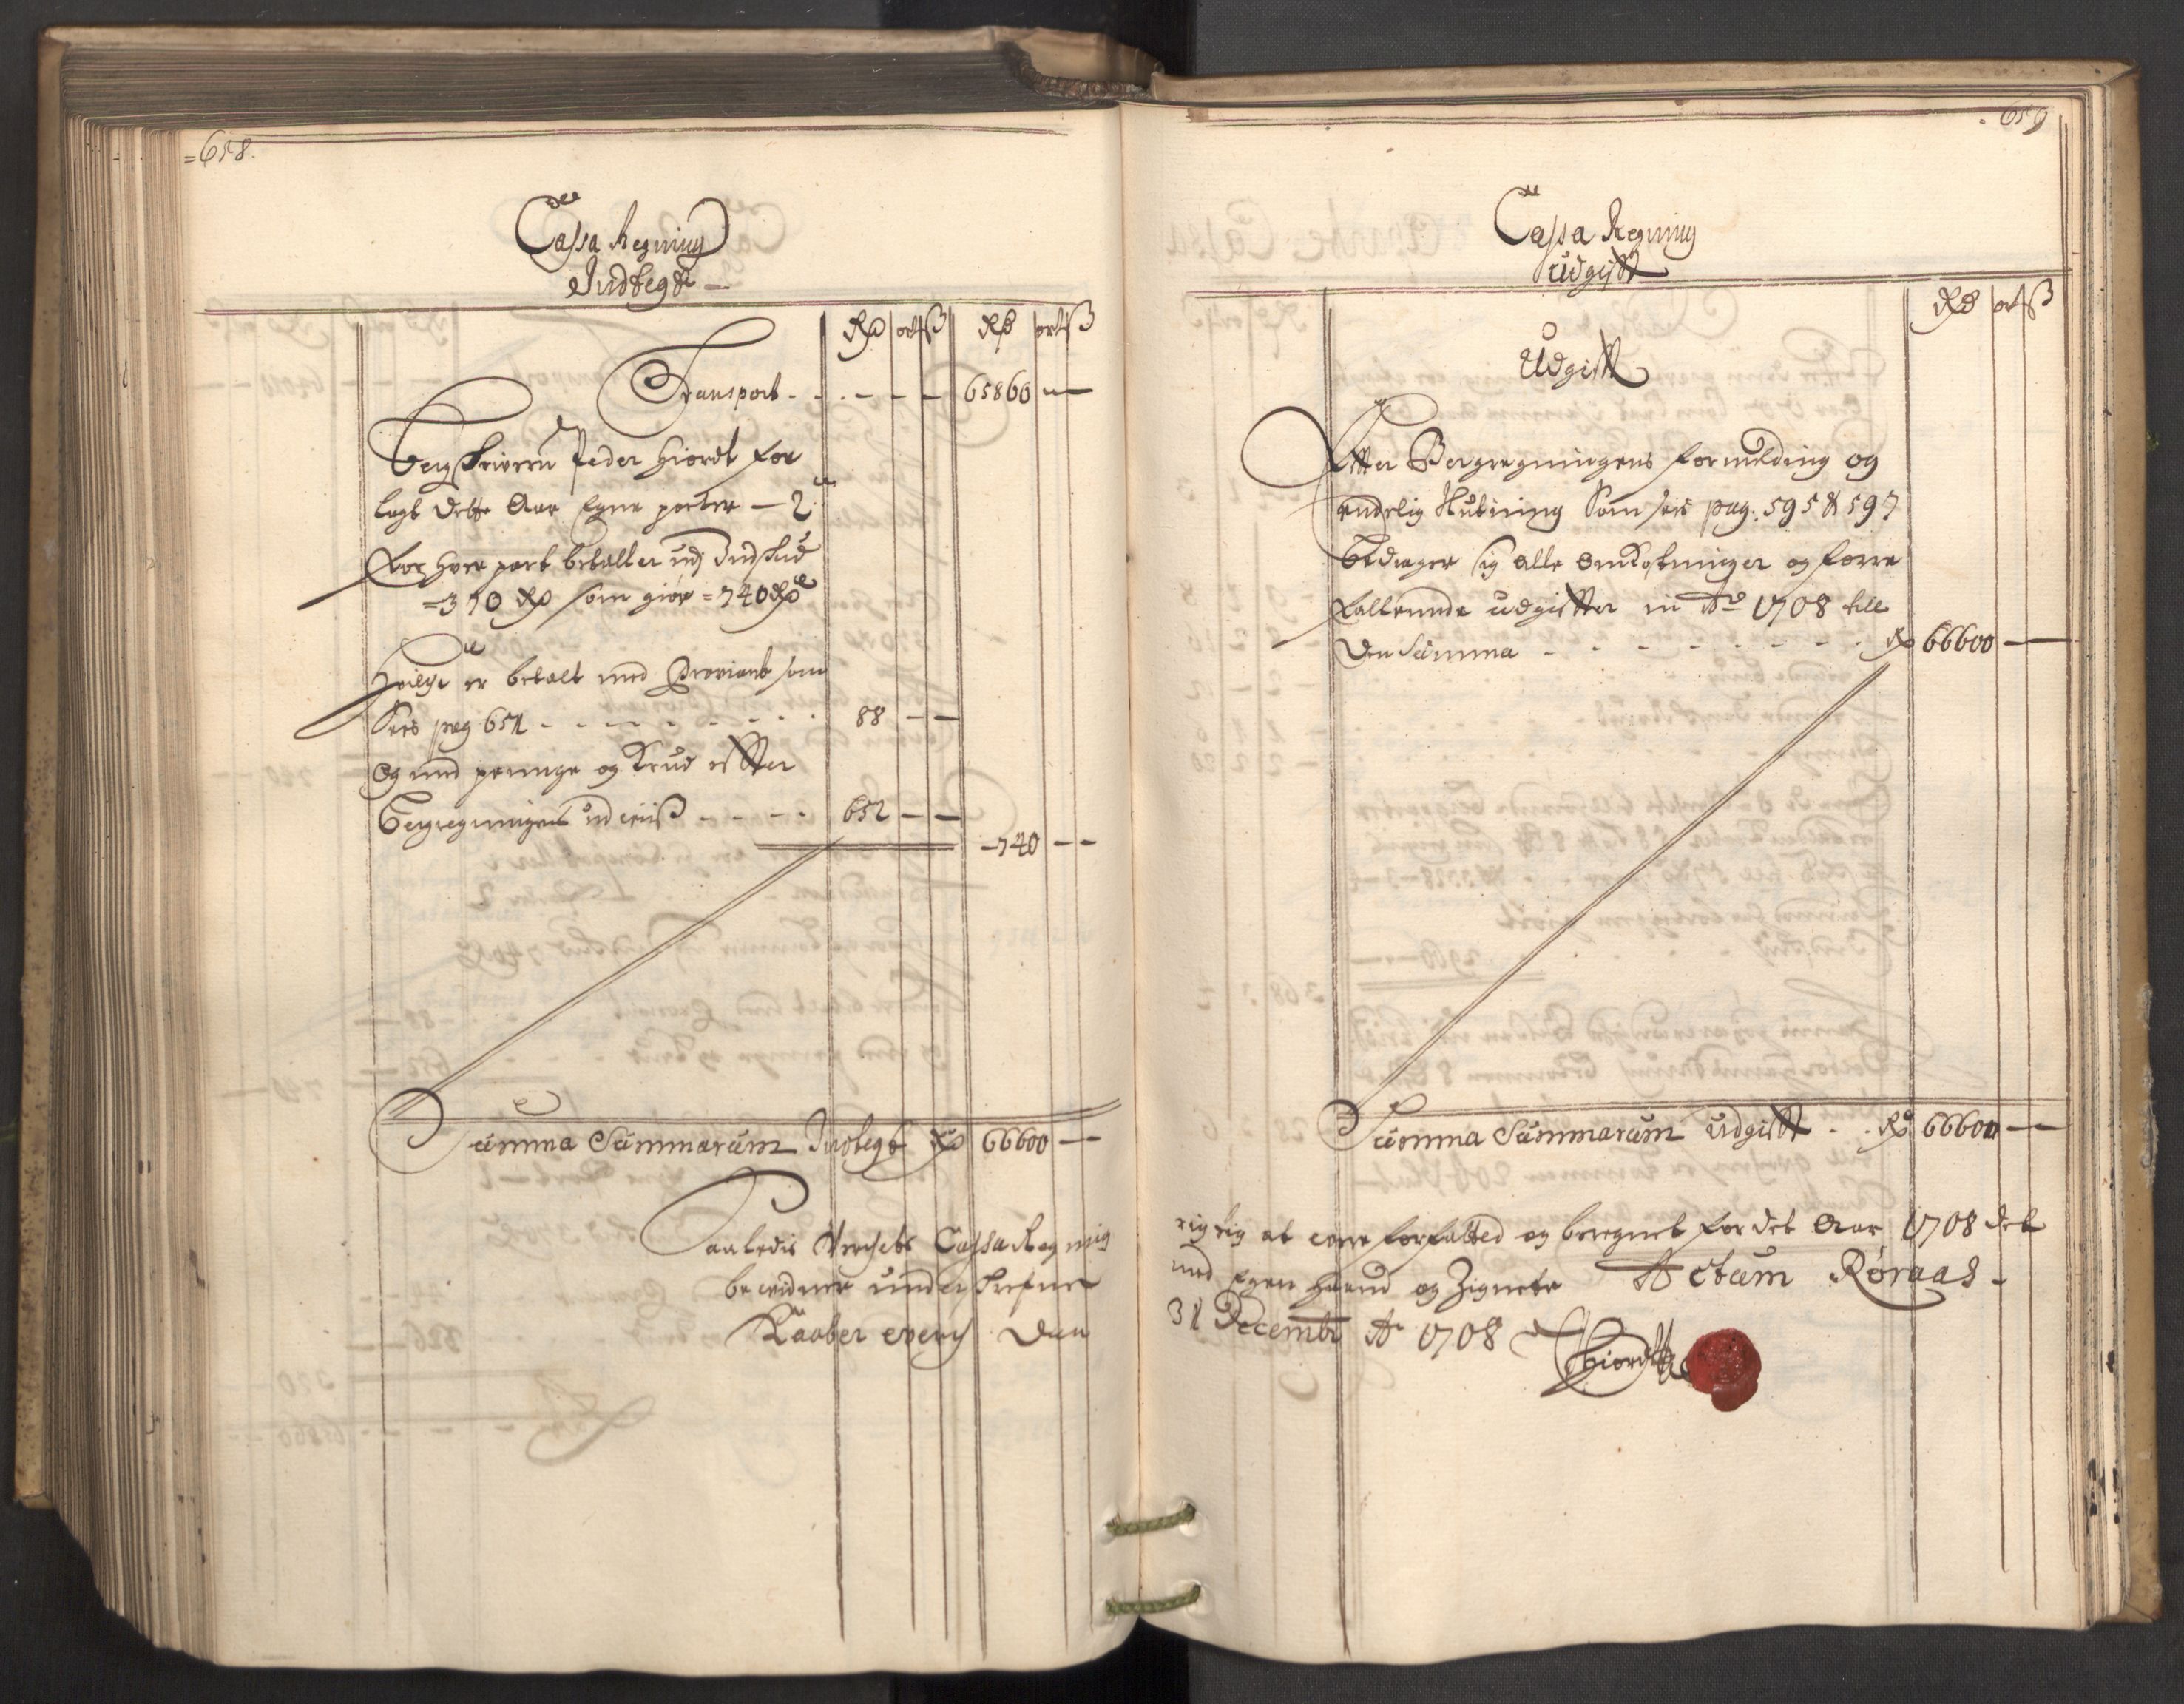 =658.
Cassa Regning
Indtegt
Rd ort ß Rd ort ß
Transport - - - - - 65860 —
Bergskriveren Peder Hiordt for
lagt dette Aar Egne parter — 2
For hver part betalter udj Indskud
=370 Rd som giør =740 Rd
Hvilche er betalt med Proviant som
Sees pag 651 - - - - - - - 88 — —
Og med penninge og Krud effter
Bergregningens udviiß - - - - 652 — —
-740 — —
Summa Summarum Indtegt Rd 66600 —
Saaledis Verchets Cassa Regning
bevidner under Skrefne
Kaaber Verch Den
659
Cassa Regning
Udgifft
Rd ort ß
Udgifft
Effter Bergregningens formelding og
endelig Slutning Som sees pag: 595 & 597
bedrager sig alle Omkostninger og forre
faldende udgiffter in Ao 1708 till
den Summa - - - - - - - Rd 66600 —
Summa Summarum udgifft - - Rd 66600 —
rigtig at være forfatted og beregnet for det Aar 1708 det
med Egen Haand og Zignete Actum Røraas -
31 Decembr Ao 1708
PHiordt